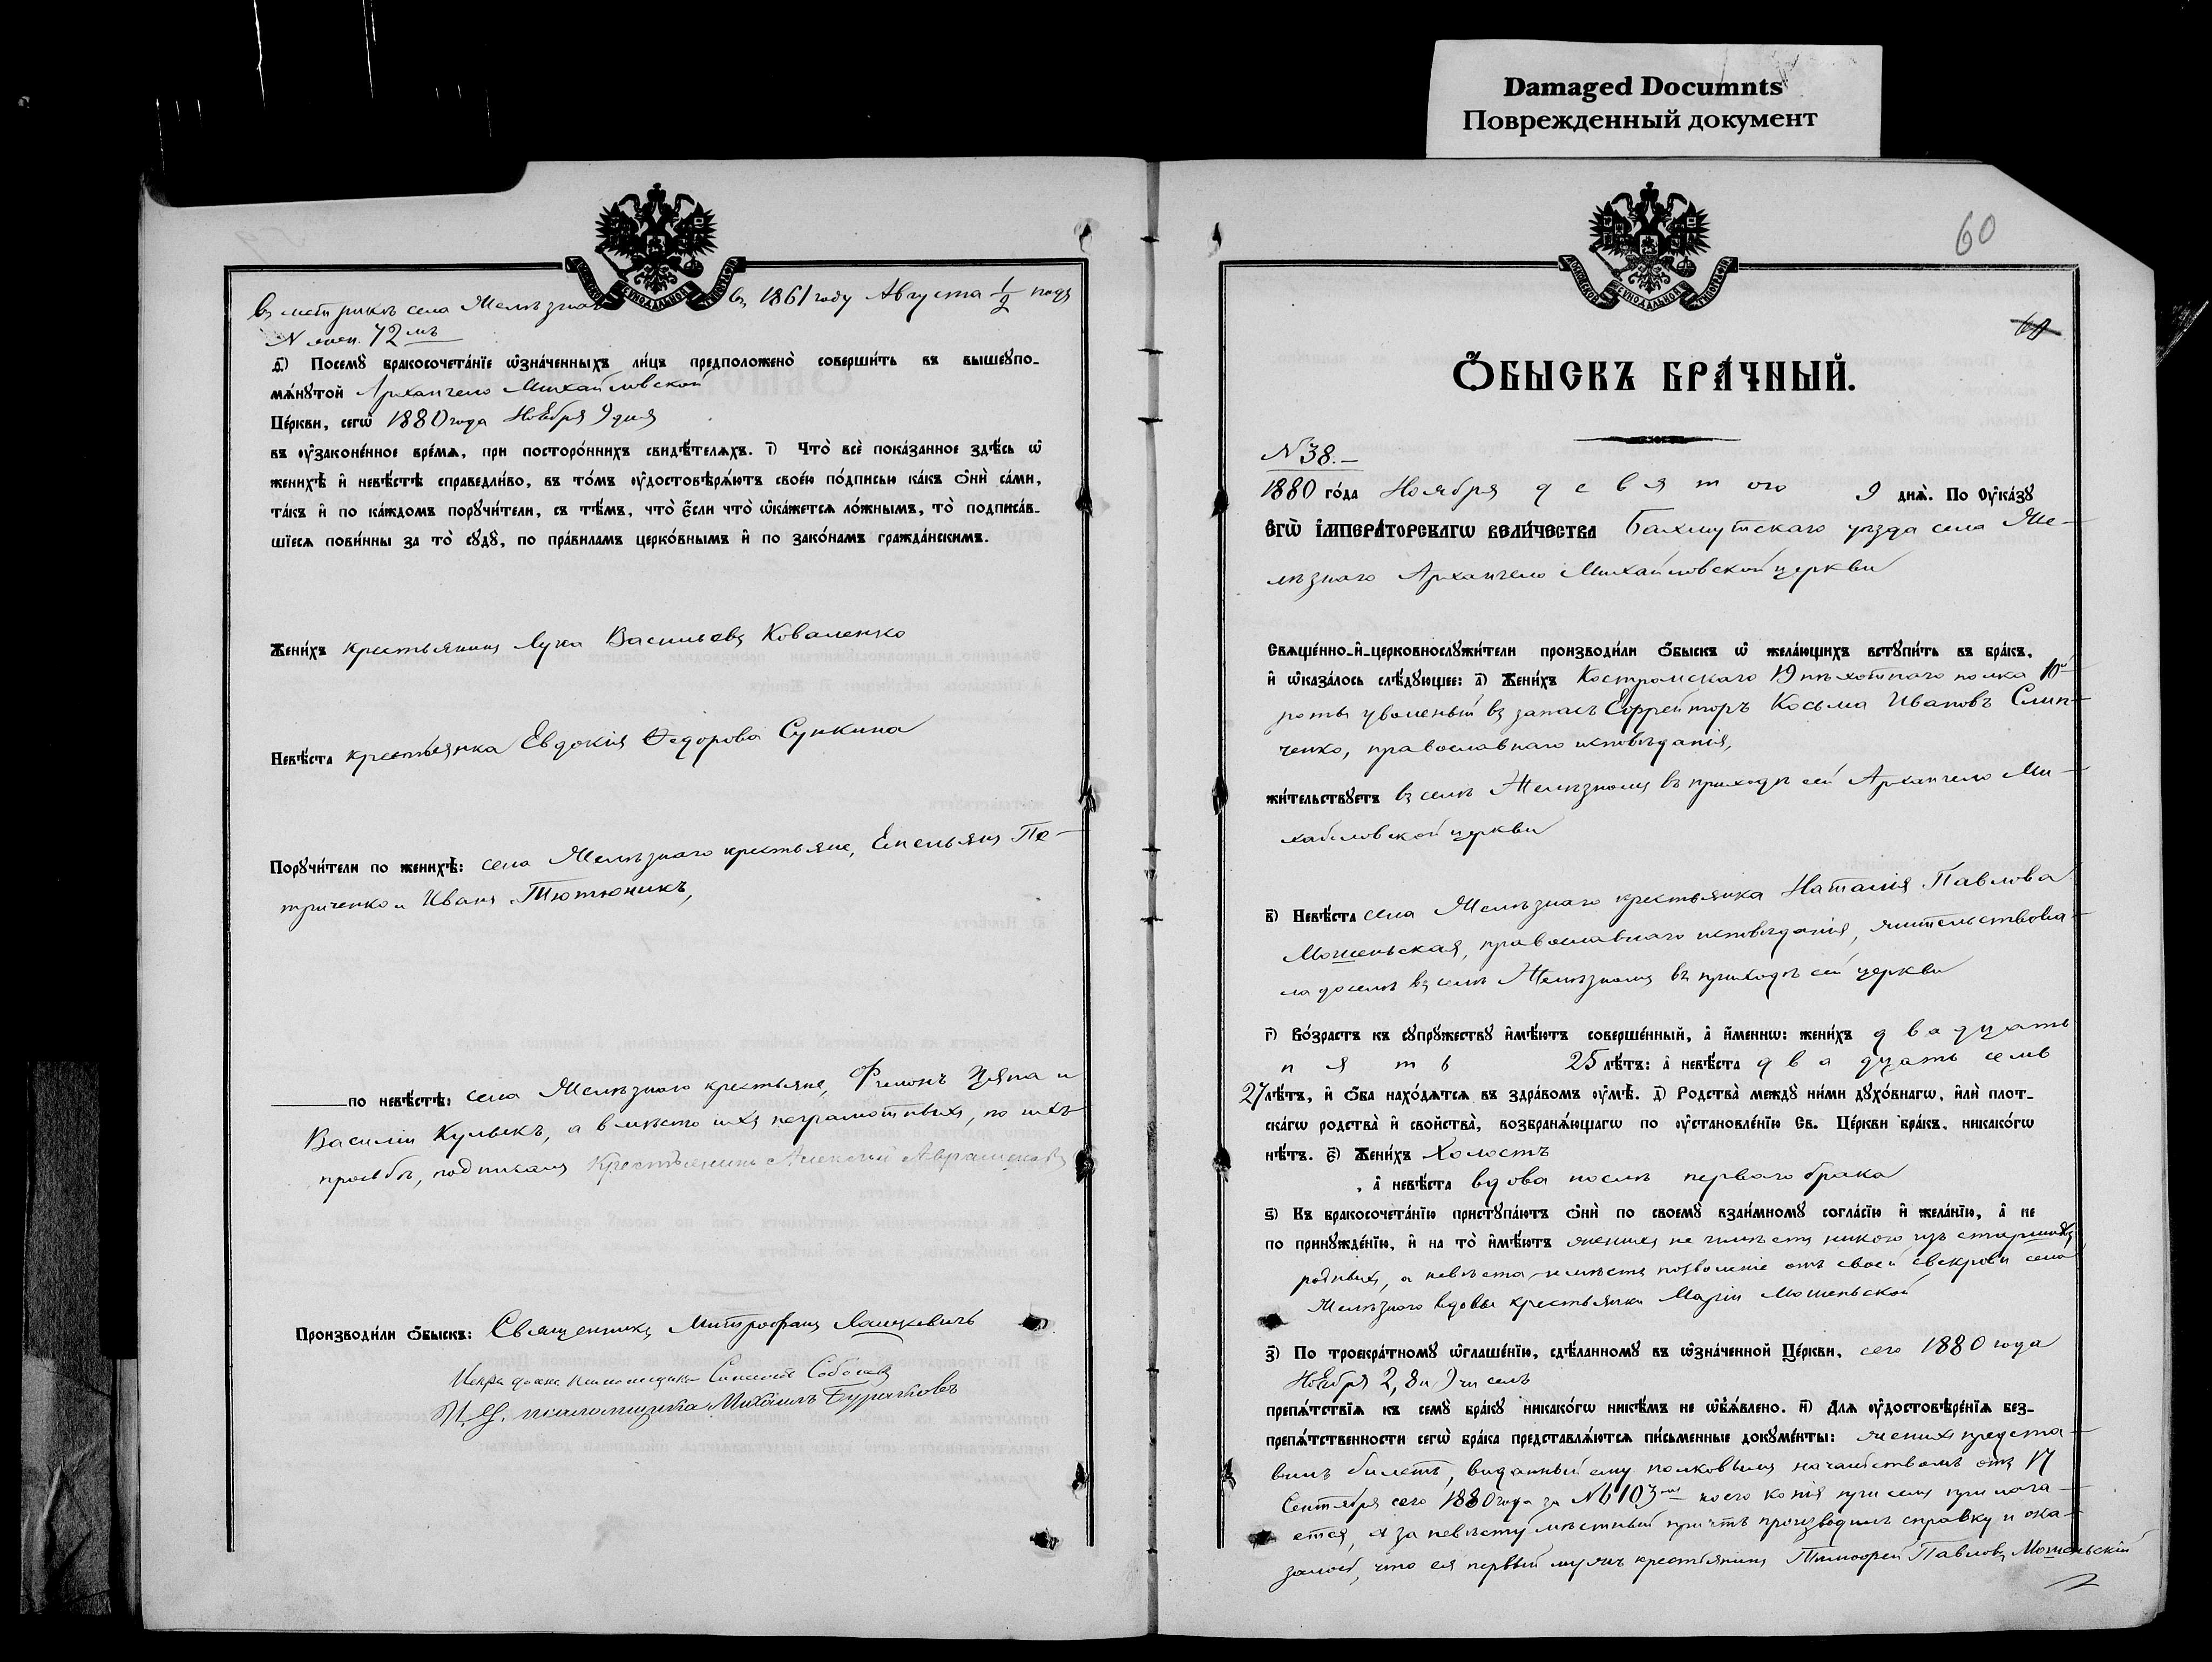 Damaged Documnts
Поврежденный документ
въ метрикѣ села Желѣзнаго въ 1861 году Августа 1/2 подъ
N жен. 72мъ
д҃) Посемꙋ бракосочета́нїе ѡ҆зна́ченныхъ ли́цъ предположено̀ соверши́ть въ вышеꙋпо-
мѧ́нꙋтой Архангело Михайловской
Це́ркви, сегѡ̀ 1880 года Ноября 9 дня
въ ᲂу҆законе́нное вре́мѧ, при посторо́ннихъ свидѣ́телѧхъ. і҃) Что̀ всѐ пока́занное здѣ́сь ѡ҆
женихѣ̀ и҆ невѣ́стѣ справедли́во, въ то́мъ ᲂу҆достовѣрѧ́ютъ свое́ю по́дписью ка́къ ѻ҆нѝ са́ми,
та́къ и҆ по ка́ждомъ порꙋчи́тели, съ тѣ́мъ, что̀ є҆́сли что̀ ѡ҆ка́жетсѧ ло́жнымъ, то̀ подписа́в-
шїесѧ пови́нны за то̀ сꙋдꙋ̀, по пра́виламъ церко́внымъ и҆ по зако́намъ гражда́нскимъ.
Жени́хъ крестьянинъ Лука Васильевъ Коваленко
Невѣ́ста крестьянка Евдокія Ѳедорова Сункина
Порꙋчи́тели по женихѣ̀: села Желѣзнаго крестьяне, Емельянъ Пе-
триченко и Иванъ Тютюникъ,
по невѣ́стѣ: села Желѣзнаго крестьяне, Филонъ Цяпа и
Василій Кулыкъ, а вмѣсто ихъ неграмотныхъ, по ихъ
просьбѣ, подписалъ Крестьянинъ Алексѣй
Производи́ли ѻ҆́быскъ: Священникъ Митрофанъ Лашкевичъ
псаломщика Соболевъ
И. д. псаломщика Михаилъ Бурачковъ
60
Ѻ҆́БЫСКЪ БРА́ЧНЫЙ.
N 38.-
1880 го́да Ноября девятого 9 днѧ̀. По ᲂу҆ка́зꙋ
Є҆ГѠ̀ І҆МПЕРА́ТОРСКАГѠ ВЕЛИ́ЧЕСТВА Бахмутскаго уѣзда села Же-
лѣзнаго Архангело Михайловской церкви
Свѧще́нно-и҆-церковнослꙋжи́тели производи́ли ѻ҆́быскъ ѡ҆ жела́ющихъ встꙋпи́ть въ бра́къ,
и҆ ѡ҆каза́лось слѣ́дꙋющее: а҃) Жени́хъ Костромскаго 19 пѣхотнаго полка 10й
роты уволеный въ запасъ Ефрейторъ Косьма Ивановъ Слип-
ченко, православнаго исповѣданія,
жи́тельствꙋетъ въ селѣ Желѣзномъ въ приходѣ сей Архангело Ми-
хайловской церкви
в҃) Невѣ́ста села Желѣзнаго крестьянка Наталія Павлова
Мошеньская, православнаго исповѣданія, жительствова-
ла доселѣ въ селѣ Желѣзномъ въ приходѣ сей церкви
г҃) Во́зрастъ къ сꙋпрꙋ́жествꙋ и҆мѣ́ютъ соверше́нный, а҆ и҆́меннѡ: жени́хъ двадцать
пять 25 лѣ́тъ: а҆ невѣ́ста двадцать семь
27 лѣ́тъ, и҆ ѻ҆́ба нахо́дѧтсѧ въ здра́вомъ ᲂу҆мѣ̀. д҃) Родства̀ междꙋ ни́ми дꙋхо́внагѡ, и҆лѝ плот-
ска́гѡ родства̀ и҆ свойства̀, возбранѧ́ющагѡ по ᲂу҆становле́нїю Св. Це́ркви бра́къ, никако́гѡ
нѣ́тъ. є҃) Жени́хъ Холостъ
, а҆ невѣ́ста вдова послѣ перваго брака
ѕ҃) Къ бракосочета́нїю пристꙋпа́ютъ ѻ҆нѝ по своемꙋ̀ взаи́мномꙋ согла́сїю и҆ жела́нїю, а҆ не
по принꙋжде́нїю, и҆ на то̀ и҆мѣ́ютъ женихъ не имѣетъ никого изъ старшихъ
родныхъ, а невѣста имѣетъ позволеніе отъ своей свекрови села
Желѣзного вдовы крестьянки Маріи Мошеньской
з҃) По троекра́тномꙋ ѡ҆глаше́нїю, сдѣ́ланномꙋ въ ѡ҆зна́ченной Це́ркви, сего 1880 года
Ноября 2, 8 и 9 чиселъ
препѧ́тствїѧ къ семꙋ̀ бра́кꙋ никако́гѡ никѣ́мъ не ѡ҆б̾ѧ́влено. и҃) Длѧ ᲂу҆достовѣре́нїѧ без-
препѧ́тственности сегѡ̀ бра́ка представлѧ́ютсѧ пи́сьменные докꙋме́нты: женихъ предста-
вилъ билетъ, виданный ему полковымъ начальствомъ отъ 17
Сентября сего 1880 года за N 6103мъ коего копія при семъ прилага-
ется, а за невѣсту мѣстный причтъ производилъ справку и ока-
залось, что ея первый мужъ крестьянинъ Тимоѳей Павловъ Мошеньскій